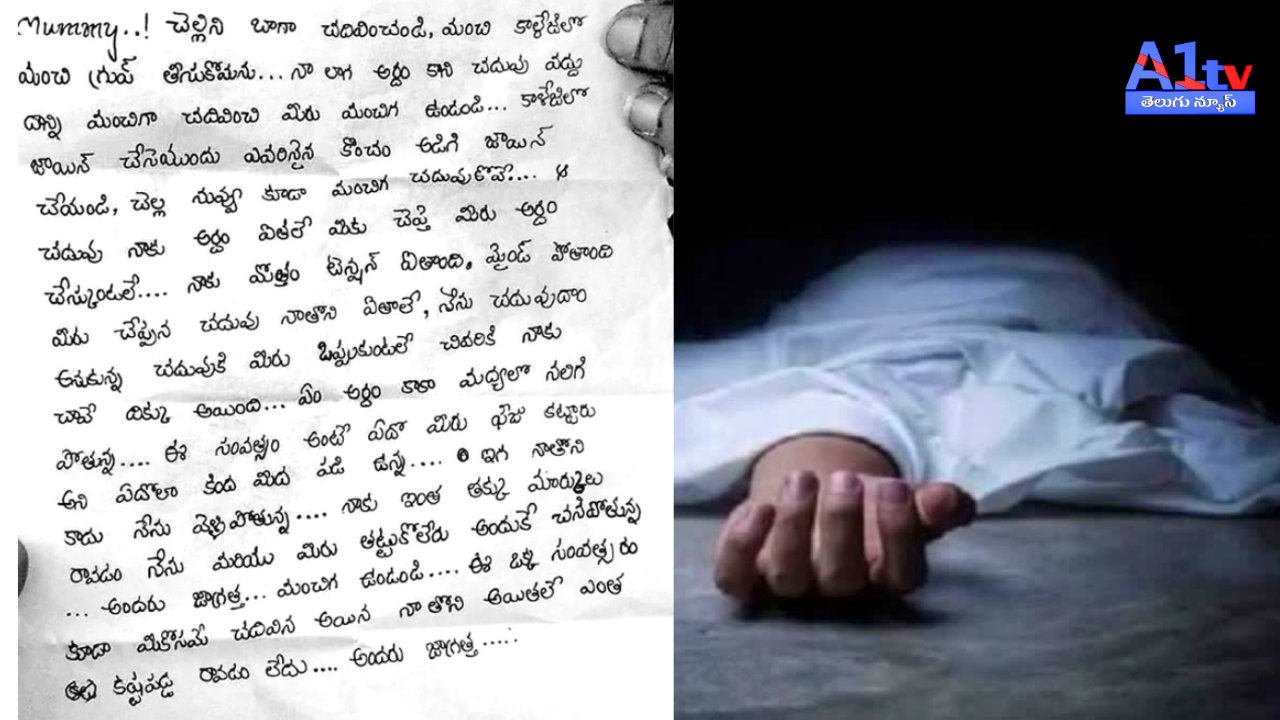 Mummy..! చెల్లిని బాగా చదివించండి, మంచి కాల్లేజిలో
మంచి గ్రుప్ తీసుకొమను... నా లాగ అర్దం కాని చదువు వద్దు
దాన్ని మంచిగా చదివించి మీరు మంచిగ ఉండండి... కాలేజిలో
జాయిన్ చేసెముందు ఎవరినైన కొంచం అడిగి జాయిన్
చేయండి, చెల్ల నువ్వు కూడా మంచిగ చదువుకొవే....
చదువు నాకు అర్దం ఏతలే మికు చెప్తె మీరు అర్దం
చేస్కుంటలే.... నాకు మొత్తం టెన్షన్ ఏతాంది. మైండ్ పోతాంది
మీరు చేప్పున చదువు నాతొని ఏతాలే, నేను చదువుదాం
అనుకున్న చదువుకి మీరు ఒప్పుకుంటలే చివరికి నాకు
చావే దిక్కు అయింది... ఏం అర్దం కాకా మద్యలో నలిగి
పోతున్న.... ఈ సంవత్స్రం అంటే ఏదో మీరు ఫీజు కట్టారు
అని ఏదోలా కింద మీద పడి ఉన్న.... ఇగ నాతొని
కాదు నేను వెళ్లిపోతున్న.... నాకు ఇంత తక్కు మార్కులు
రావడం నేను మరియు మీరు తట్టుకోలేరు అందుకే చనిపోతున్న
... అందరు జాగ్రత్త... మంచిగ ఉండండి.... ఈ ఒక్క సంవత్సరం
కూడా మికోసమే చదివిన అయిన నాతొని అయితలే ఎంత
కష్టపడ్డ రావడం లేదు.... అందరు జాగ్రత్త.....
A1tv
తెలుగు న్యూస్